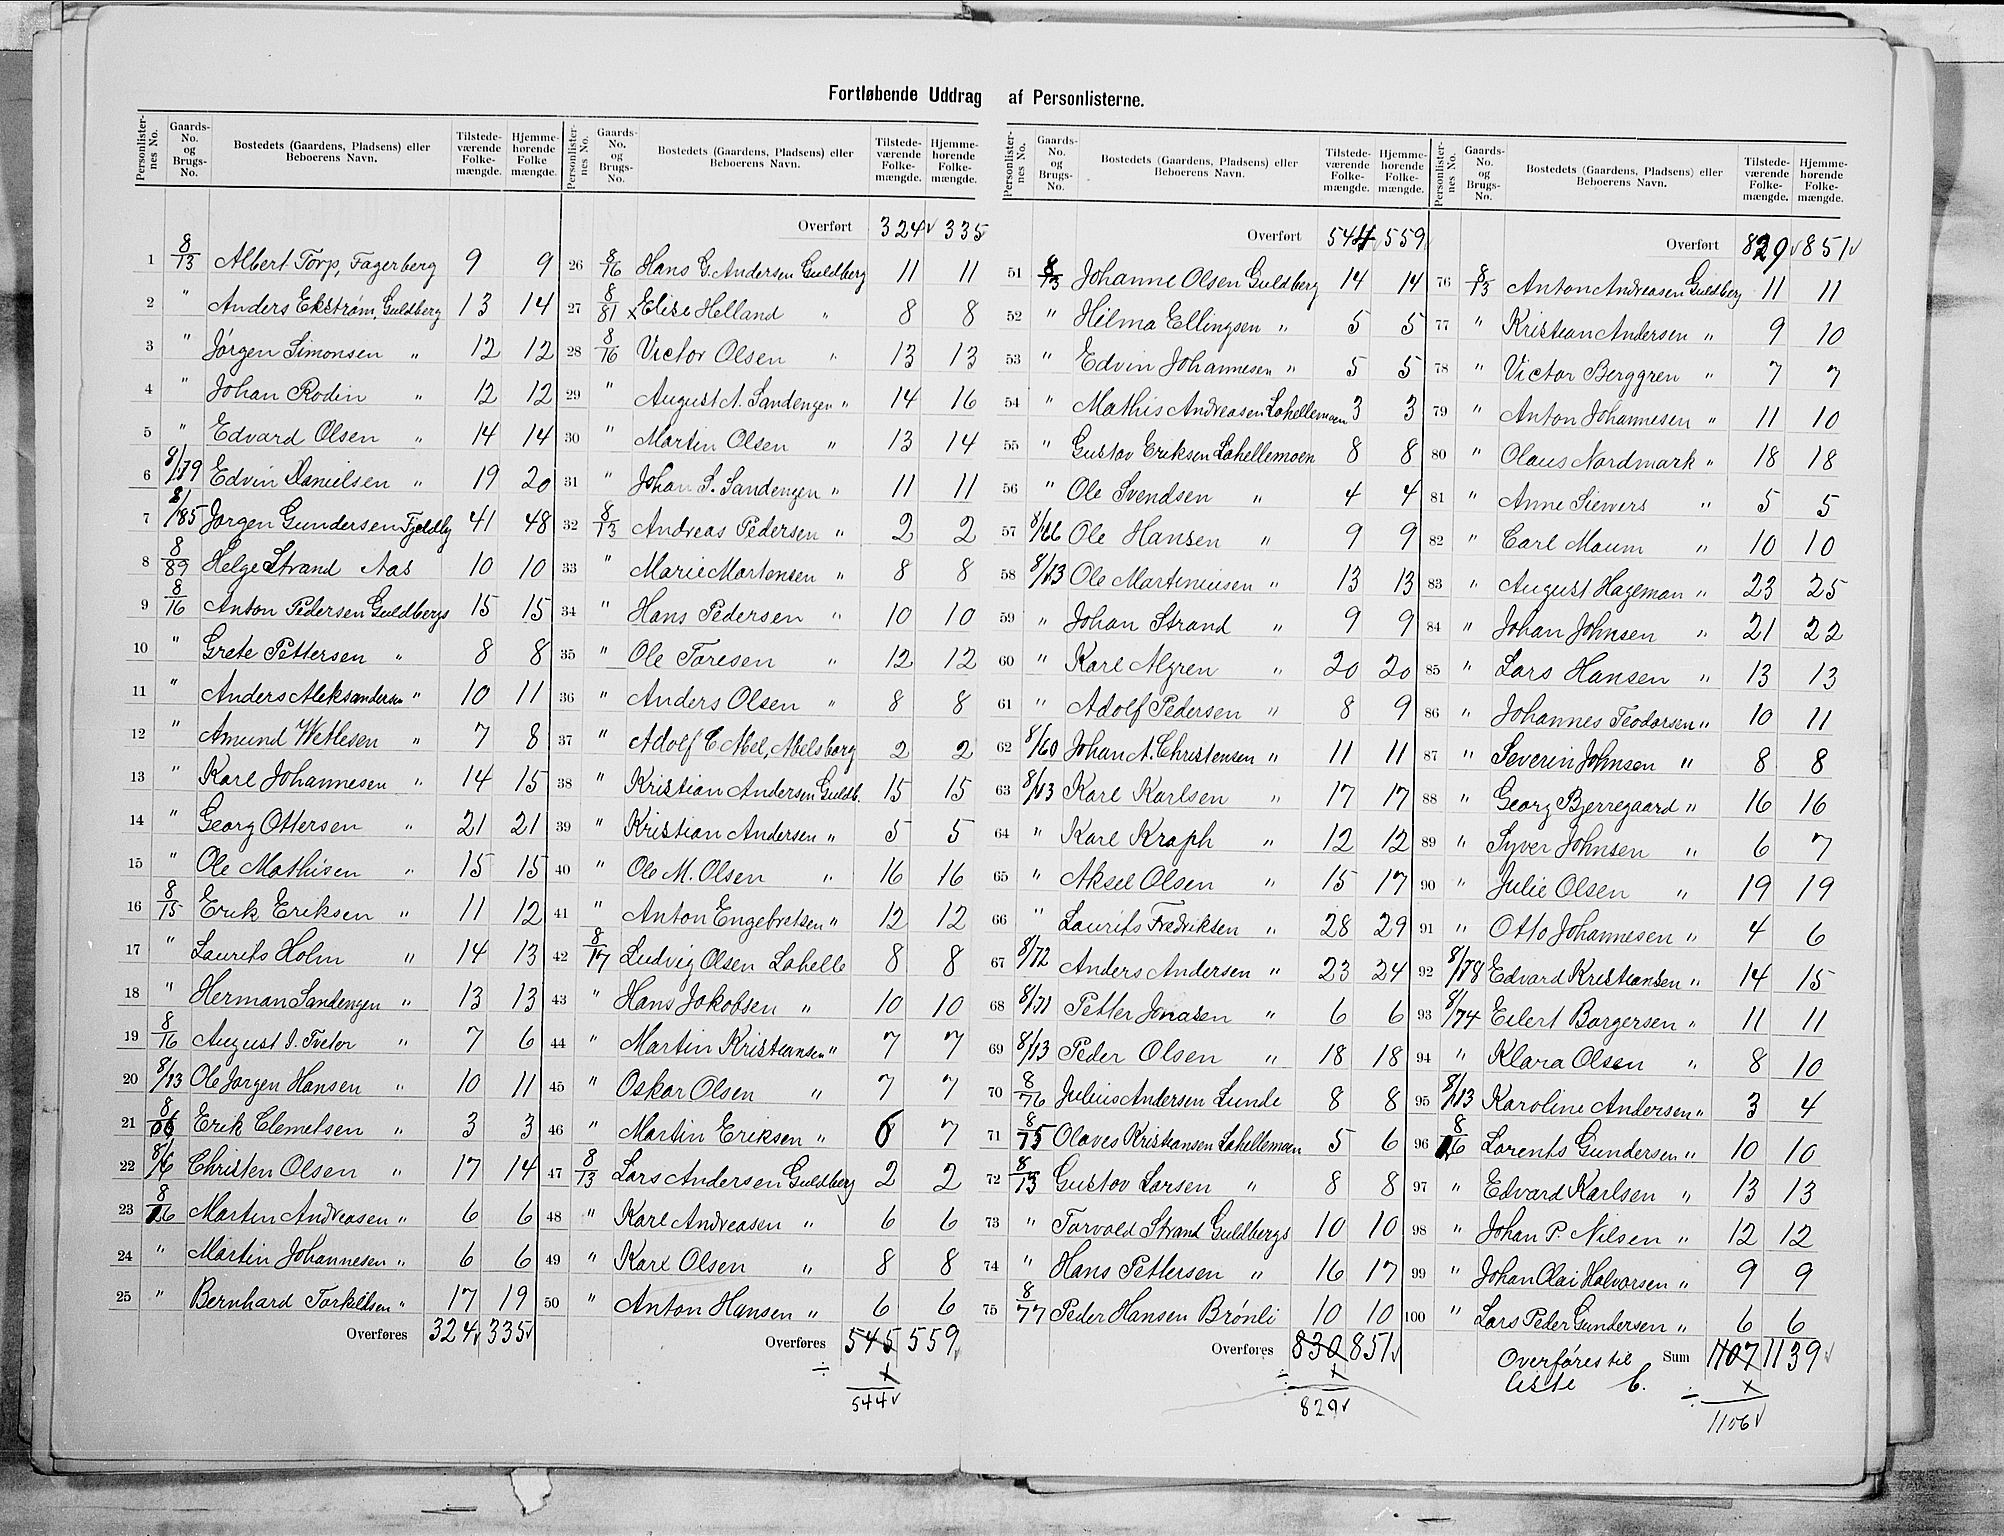 Fortløbende Uddrag af Personlisterne.
Personlisternes No. Gaards-No. og Brugs-No. Bostedets (Gaardens, Pladsens) eller Beboerens Navn. Tilstedeværende Folkemængde. Hjemmehørende Folkemængde.
1 8/13 Albert Torp, Fagerberg 9 9
2 " Anders Ekstrøm, Guldberg 13 14
3 " Jørgen Simonsen " 12 12
4 " Johan Rodin " 12 12
5 " Edvard Olsen " 14 14
6 8/79 Edvin Danielsen " 19 20
7 8/85 Jørgen Gundersen Fjeldby 41 48
8 8/89 Helge Strand Aas 10 10
9 8/16 Anton Pedersen Guldbergs 15 15
10 " Grete Pettersen " 8 8
11 " Anders Aleksandersen " 10 11
12 " Amund Wetlesen " 7 8
13 " Karl Johannesen " 14 15
14 " Georg Ottersen " 21 21
15 " Ole Mathisen " 15 15
16 8/15 Erik Eriksen " 11 12
17 " Laurits Holm " 14 13
18 " Herman Sandengen " 13 13
19 8/16 August J. Tveter " 7 6
20 8/13 Ole Jørgen Hansen " 10 11
21 Erik Clemetsen " 3 3
22 Christen Olsen " 17 14
23 8/16 Martin Andreasen " 6 6
24 " Martin Johannesen " 6 6
25 " Bernhard Torkildsen " 17 19
Overføres 324 335
Personlisternes No. Gaards-No. og Brugs-No. Bostedets (Gaardens, Pladsens) eller Beboerens Navn. Tilstedeværende Folkemængde. Hjemmehørende Folkemængde.
Overført 324 335
26 8/16 Hans G. Andersen Guldberg 11 11
27 8/81 Elise Helland " 8 8
28 8/16 Victor Olsen " 13 13
29 " August A. Sandengen " 14 16
30 " Martin Olsen " 13 14
31 " Johan S. Sandengen " 11 11
32 8/13 Andreas Pedersen " 2 2
33 " Marie Martensen " 8 8
34 " Hans Pedersen " 10 10
35 " Ole Toresen " 12 12
36 " Anders Olsen " 8 8
37 " Adolf C Abel, Abelsborg 2 2
38 " Kristian Andersen Guldb. 15 15
39 " Kristian Andersen " 5 5
40 " Ole M. Olsen " 16 16
41 " Anton Engebretsen " 12 12
42 8/17 Ludvig Olsen Lahelle 8 8
43 " Hans Jakobsen " 10 10
44 " Martin Kristiansen " 7 7
45 " Oskar Olsen " 7 7
46 " Martin Eriksen " 6 7
47 8/13 Lars Andersen Guldberg 2 2
48 " Karl Andreasen " 6 6
49 " Karl Olsen " 8 8
50 " Anton Hansen " 6 6
Overføres 545 559
÷ 1
544
Personlisternes No. Gaards-No. og Brugs-No. Bostedets (Gaardens, Pladsens) eller Beboerens Navn. Tilstedeværende Folkemængde. Hjemmehørende Folkemængde.
Overført 544 559
51 8/13 Johanne Olsen Guldberg 14 14
52 " Hilma Ellingsen " 5 5
53 " Edvin Johannesen " 5 5
54 " Mathis Andreasen Lahellemoen 3 3
55 " Gustav Eriksen Lahellemoen 8 8
56 " Ole Svendsen " 4 4
57 8/66 Ole Hansen " 9 9
58 8/13 Ole Martiniusen " 13 13
59 " Johan Strand " 9 9
60 " Karl Myren " 20 20
61 " Adolf Pedersen " 8 9
62 8/60 Johan A. Christensen " 11 11
63 8/13 Karl Karlsen " 17 17
64 " Karl Kraph " 12 12
65 " Aksel Olsen " 15 17
66 " Laurits Fredriksen " 28 29
67 8/72 Anders Andersen " 23 24
68 8/71 Petter Jonasen " 6 6
69 8/13 Peder Olsen " 18 18
70 8/76 Julius Andersen Lunde 8 8
71 8/75 Olaves Kristiansen Lahellemoen 5 6
72 8/13 Gustav Larsen " 8 8
73 " Torvald Strand Guldbergs 10 10
74 " Hans Pettersen " 16 17
75 8/77 Peder Hansen Brønli 10 10
Overføres 830 851
÷ 1
829
Personlisternes No. Gaards-No. og Brugs-No. Bostedets (Gaardens, Pladsens) eller Beboerens Navn. Tilstedeværende Folkemængde. Hjemmehørende Folkemængde.
Overført 829 851
76 8/13 Anton Andreasen Guldberg 11 11
77 " Kristian Andersen " 9 10
78 " Victor Berggren " 7 7
79 " Anton Johannesen " 11 10
80 " Olaus Nordmark " 18 18
81 " Anne Siewers " 5 5
82 " Carl Maum " 10 10
83 " August Hageman " 23 25
84 " Johan Johnsen " 21 22
85 " Lars Hansen " 13 13
86 " Johannes Teodorsen " 10 11
87 " Severin Johnsen " 8 8
88 " Georg Bjerregaard " 16 16
89 " Syver Johnsen " 6 7
90 " Julie Olsen " 19 19
91 " Otto Johannesen " 4 6
92 8/78 Edvard Kristiansen " 14 15
93 8/74 Eilert Borgersen " 11 11
94 " Klara Olsen " 8 10
95 8/13 Karoline Andersen " 3 4
96 8/16 Lorents Gundersen " 10 10
97 " Edvard Karlsen " 13 13
98 " Johan P. Nilsen " 12 12
99 " Johan Olai Halvorsen " 9 9
100 " Lars Peder Gundersen " 6 6
Overføres til Liste C. Sum 1107 1139
÷ 1
1106